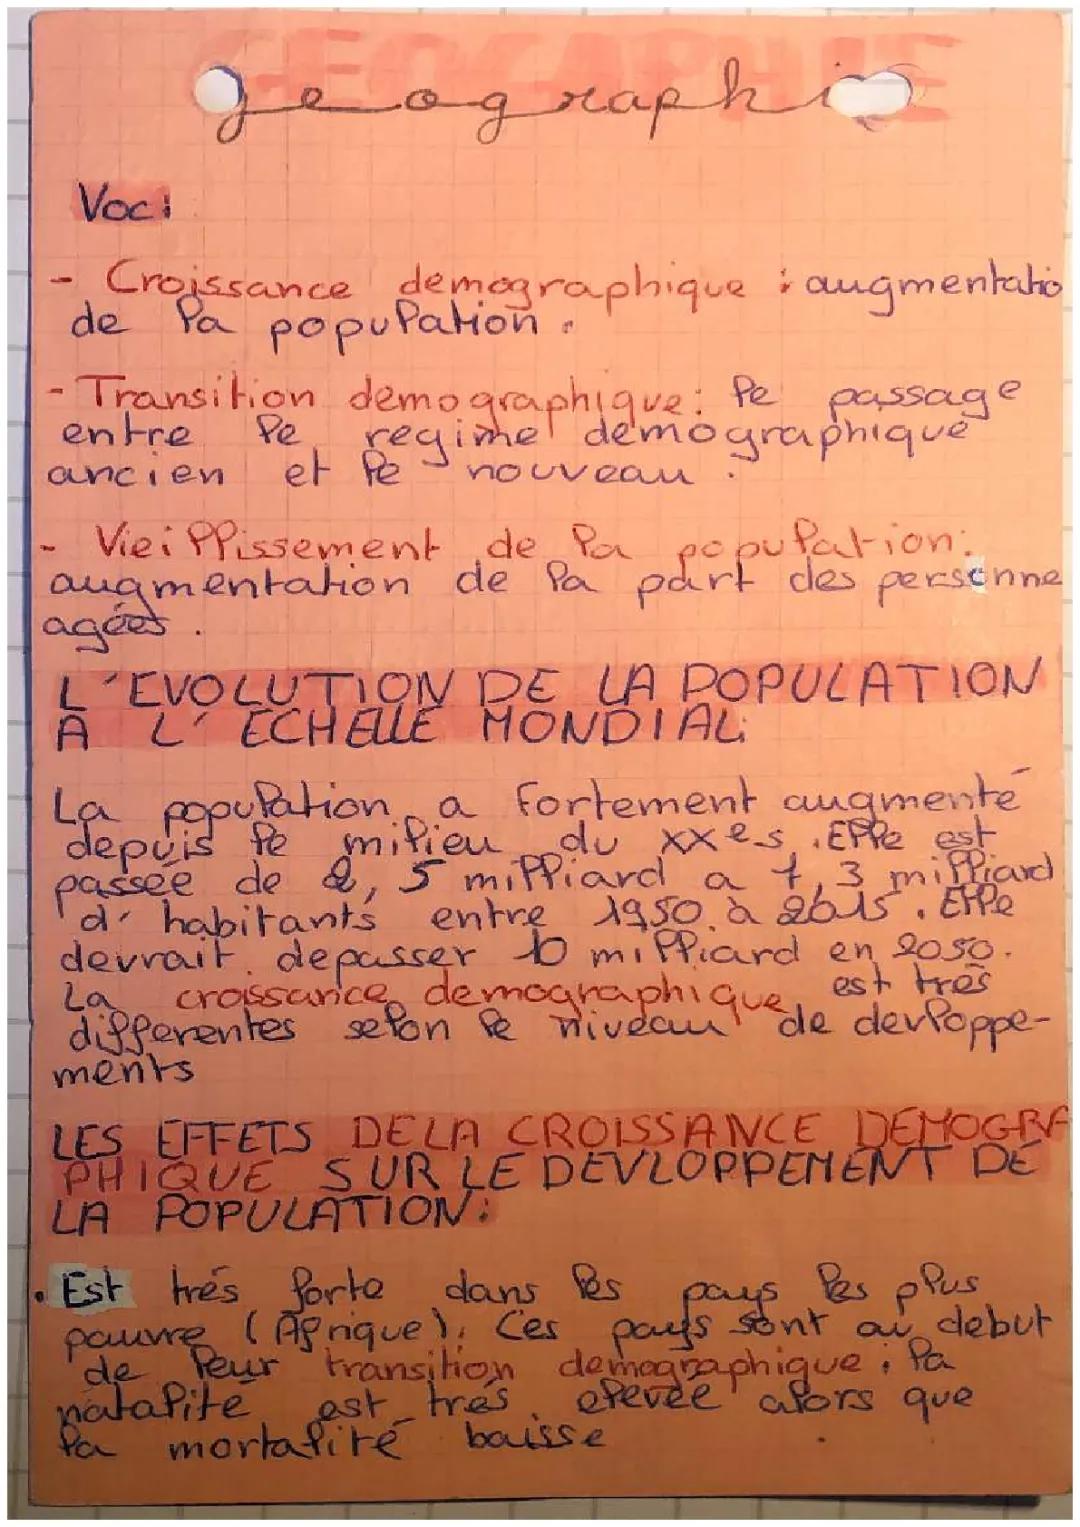 GEOGAPHIE
geographie
Voc:
- Croissance demographique : augmentatio
de la population.
- Transition démographique: le passage
entre le regime démographique
ancien et le nouveau.
- Vieillissement de la population:
augmentation de la part des personne
agées.
L'EVOLUTION DE LA POPULATION
A L'ECHELLE MONDIAL:
La population a fortement augmenté
depuis le milieu du XXes. Elle est
passée de 2,5 milliard a 7,3 milliard
d'habitants entre 1950 à 2015. Elle
devrait depasser 10 milliard en 2050.
La croissance demographique est très
differentes selon le niveau de devloppe-
ments
LES EFFETS DE LA CROISSANCE DEMOGRA
PHIQUE SUR LE DEVLOPPEMENT DE
LA POPULATION:
. Est trés forte dans les pays les plus
pauvre (Afrique). Ces pays sont au debut
de leur transition demographique, la
natalité est trés elevée alors que
la mortalité baisse.